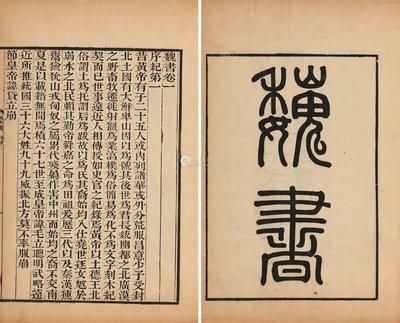 魏書
魏書卷一
序紀第一
昔黃帝有子二十五人或內列諸華或外分荒服昌意少子受封
北土國有大鮮卑山因以爲號其後世爲君長統幽都之北廣漠
之野畜牧遷徙射獵爲業淳樸爲俗簡易爲化不爲文字刻木紀
契而已世事遠近人相傳授如史官之紀錄焉黃帝以土德王北
俗謂土爲托謂后爲跋故以爲氏其裔始均入仕堯世逐女魃於
弱水之北民賴其勤帝舜嘉之命爲田祖爰歷三代以及秦漢獯
鬻獫狁山戎匈奴之屬累代殘暴作害中州而始均之裔不交南
夏是以載籍無聞焉積六十七世至成皇帝諱毛立聰明武略遠
近所推統國三十六大姓九十九威振北方莫不率服崩
節皇帝諱貸立崩